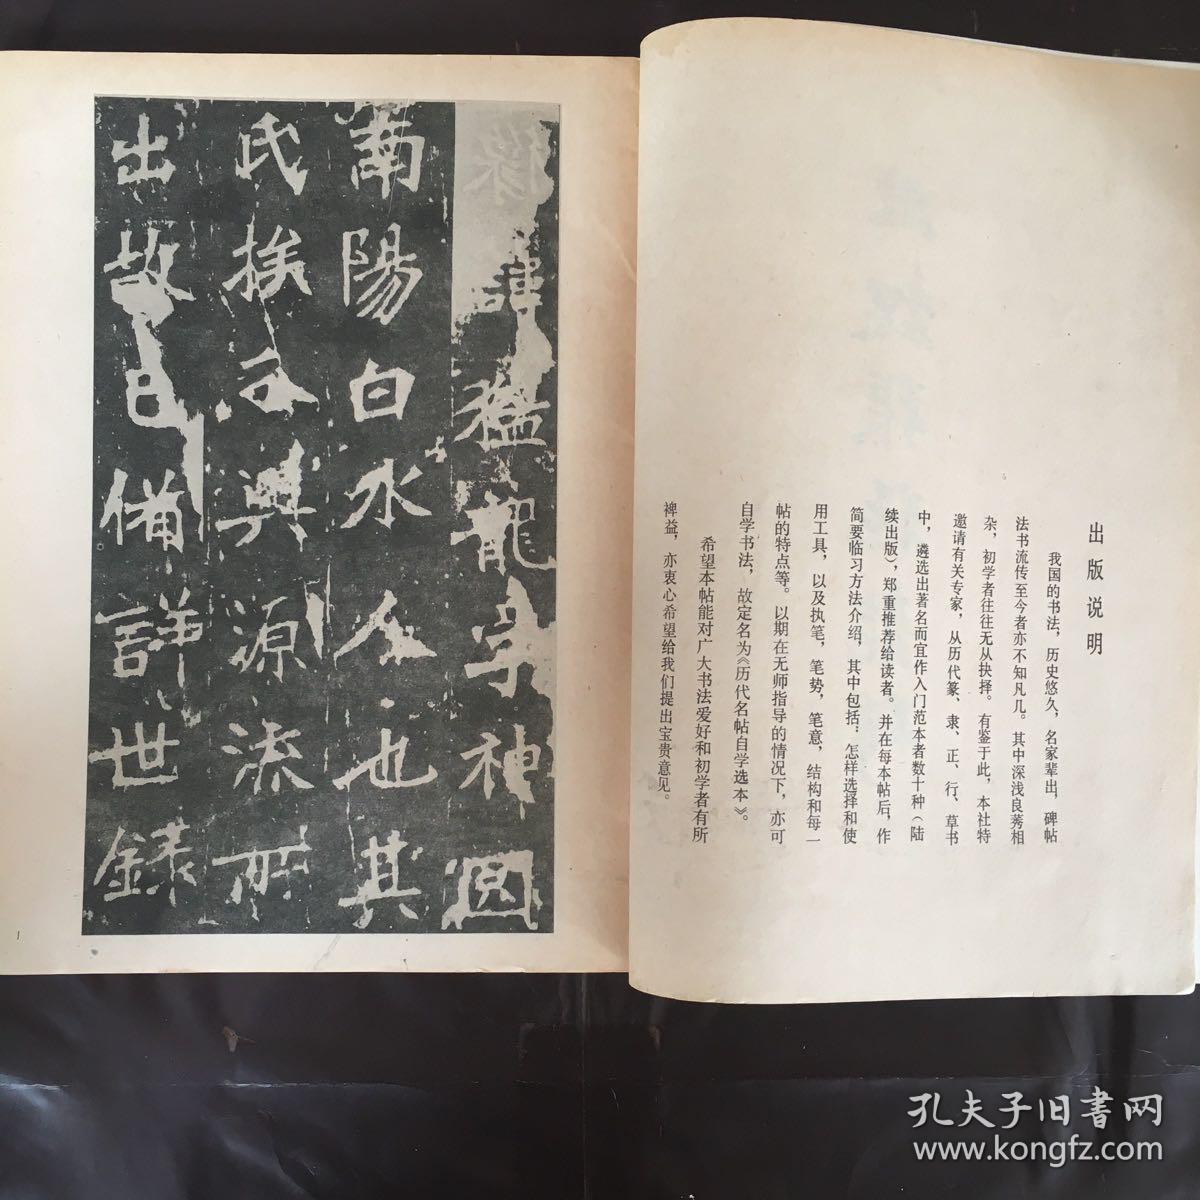 出版说明
我国的书法，历史悠久，名家辈出，碑帖
法书流传至今者亦不知凡几。其中深浅良莠相
杂，初学者往往无从抉择。有鉴于此，本社特
邀请有关专家，从历代篆、隶、正、行、草书
中，遴选出著名而宜作入门范本者数十种（陆
续出版），郑重推荐给读者。并在每本帖后，作
简要临习方法介绍，其中包括：怎样选择和使
用工具，以及执笔，笔势，笔意，结构和每一
帖的特点等。以期在无师指导的情况下，亦可
自学书法，故定名为《历代名帖自学选本》。
希望本帖能对广大书法爱好和初学者有所
裨益，亦衷心希望给我们提出宝贵意见。
猛龍字神囧
南陽白水人也其
氏族分興源流所
出故已備詳世錄
1
孔夫子旧书网
www.kongfz.com